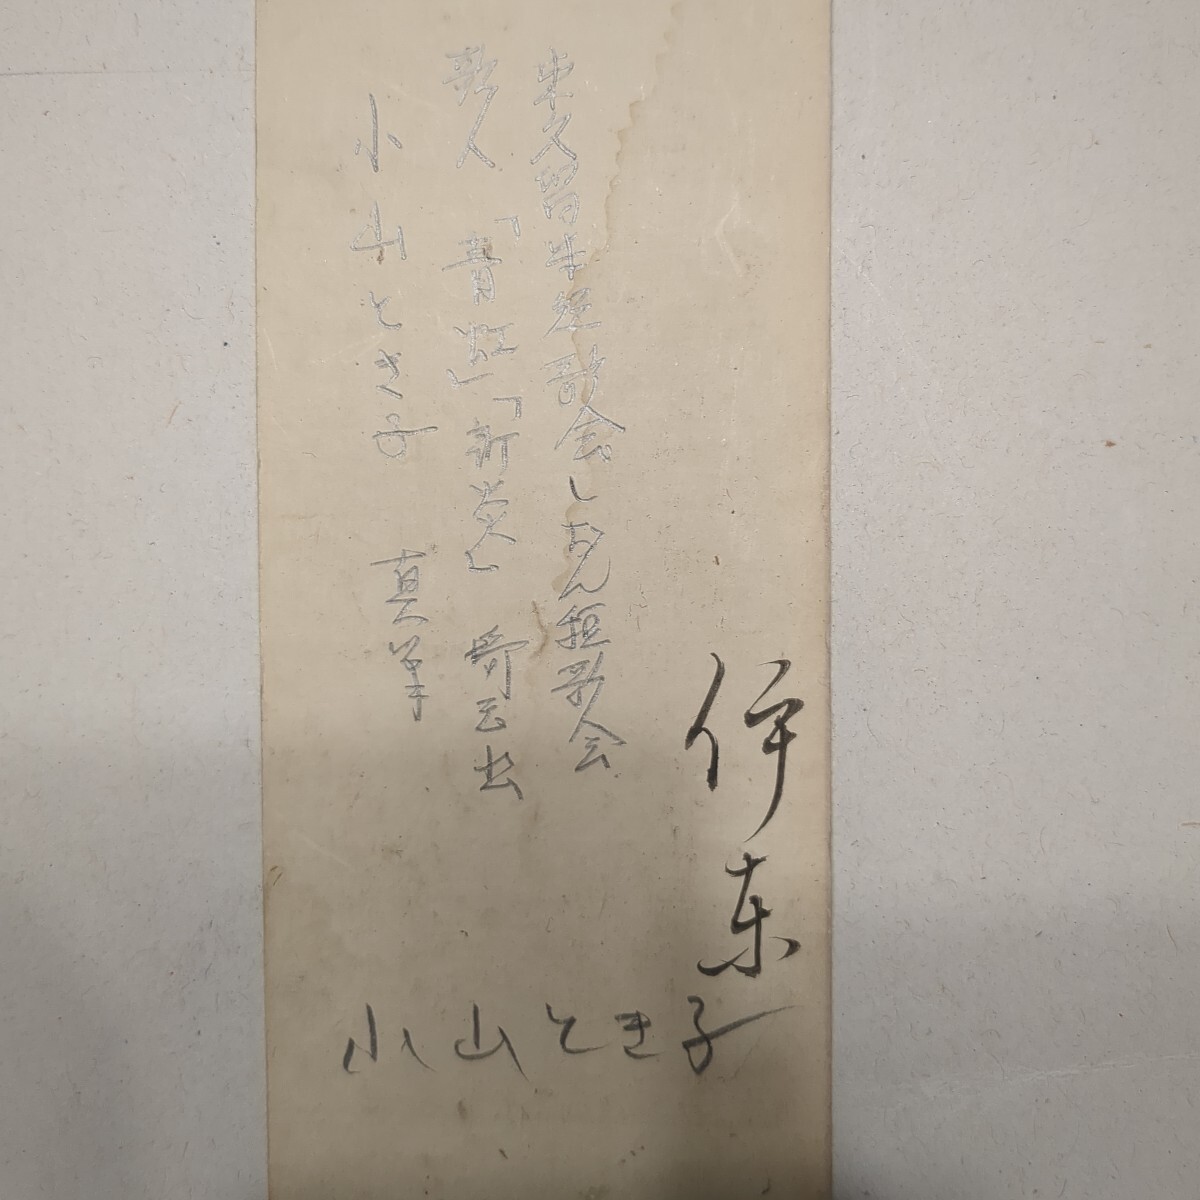 伊東
東久留米短歌会しおん短歌会
歌人「青虹」「新炎」
小山とき子 真筆
小山とき子